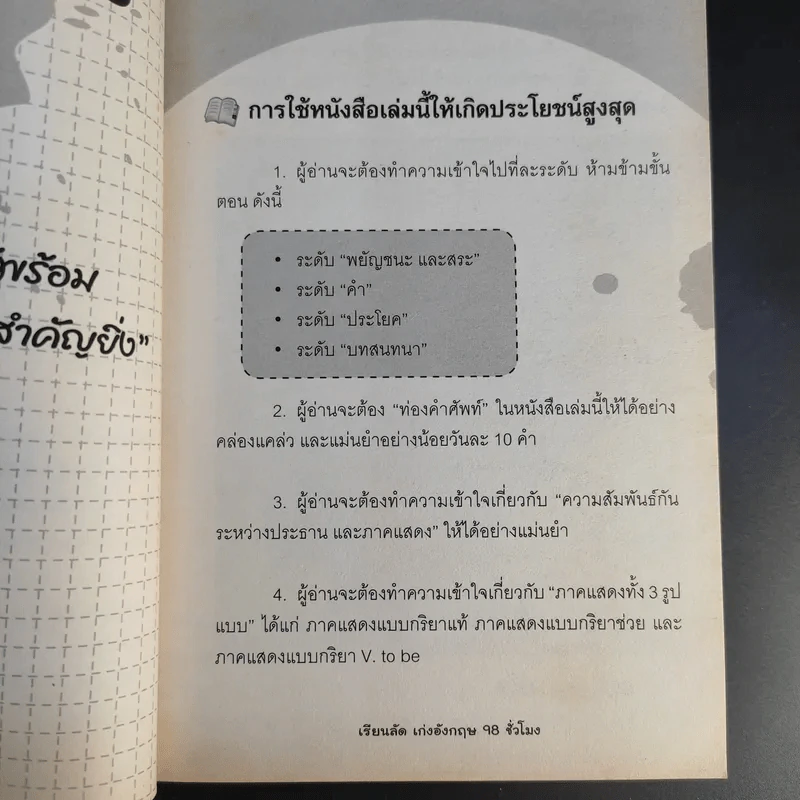 พร้อม
สำคัญยิ่ง”
การใช้หนังสือเล่มนี้ให้เกิดประโยชน์สูงสุด
1. ผู้อ่านจะต้องทำความเข้าใจไปทีละระดับ ห้ามข้ามขั้น
ตอน ดังนี้
• ระดับ “พยัญชนะ และสระ”
• ระดับ “คำ”
• ระดับ “ประโยค”
• ระดับ “บทสนทนา”
2. ผู้อ่านจะต้อง “ท่องคำศัพท์” ในหนังสือเล่มนี้ให้ได้อย่าง
คล่องแคล่ว และแม่นยำอย่างน้อยวันละ 10 คำ
3. ผู้อ่านจะต้องทำความเข้าใจเกี่ยวกับ “ความสัมพันธ์กัน
ระหว่างประธาน และภาคแสดง” ให้ได้อย่างแม่นยำ
4. ผู้อ่านจะต้องทำความเข้าใจเกี่ยวกับ “ภาคแสดงทั้ง 3 รูป
แบบ” ได้แก่ ภาคแสดงแบบกริยาแท้ ภาคแสดงแบบกริยาช่วย และ
ภาคแสดงแบบกริยา V. to be
เรียนลัด เก่งอังกฤษ ๅ8 ชั่วโมง